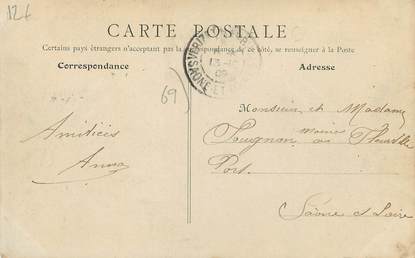 126
CARTE POSTALE
Certains pays étrangers n'acceptant pas la correspondance de ce côté, se renseigner à la Poste
Correspondance
Adresse
69
Amitiés
Anna
Monsieur et Madame
Mairie
au Fleurville
Port.
Saône et Loire